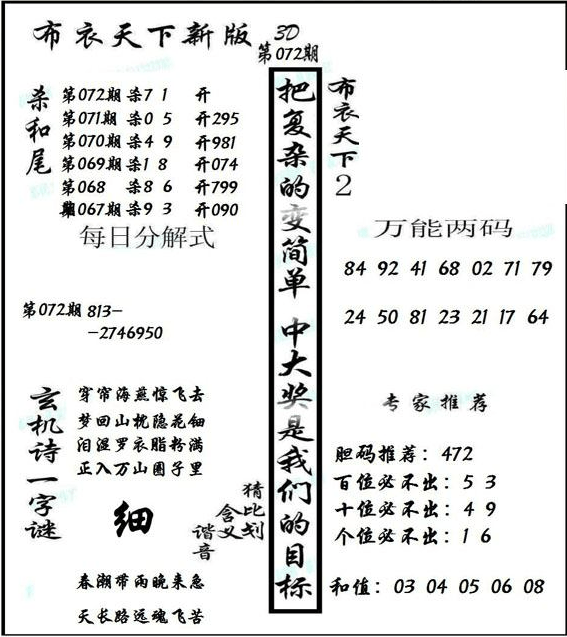 布衣天下新版
3D
第072期
杀和尾
第072期 杀7 1 开
第071期 杀0 5 开295
第070期 杀4 9 开981
第069期 杀1 8 开074
第068 杀8 6 开799
第067期 杀9 3 开090
每日分解式
第072期 813-
-2746950
玄机诗一字谜
穿帘海燕惊飞去
梦回山枕隐花钿
泪湿罗衣脂粉满
正入万山圈子里
细
猜比划
含义
谐音
春潮带雨晚来急
天长路远魂飞苦
把复杂的变简单 中大奖是我们的目标
布衣天下2
万能两码
84 92 41 68 02 71 79
24 50 81 23 21 17 64
专家推荐
胆码推荐：472
百位必不出：5 3
十位必不出：4 9
个位必不出：1 6
和值：03 04 05 06 08